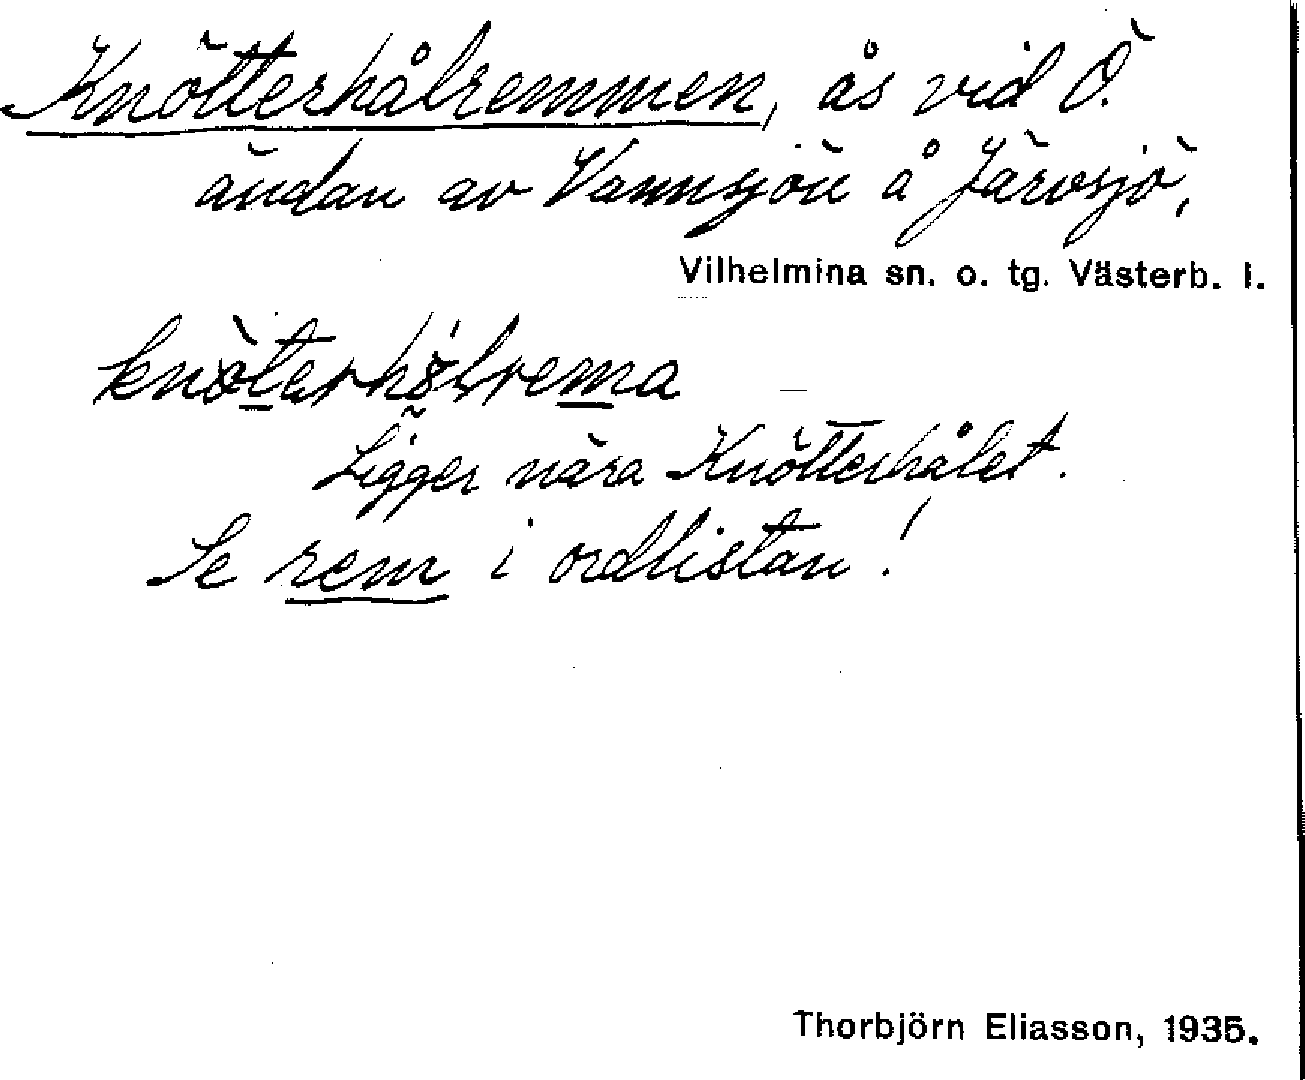 Knötterhålremmen, ås vid Ö.
ändan av Vannsjön å Järvsjö,
Vilhelmina sn. o. tg. Västerb. l.
Ligger nära Knötterhålet.
Se rem i ordlistan!
Thorbjörn Eliasson, 1935.